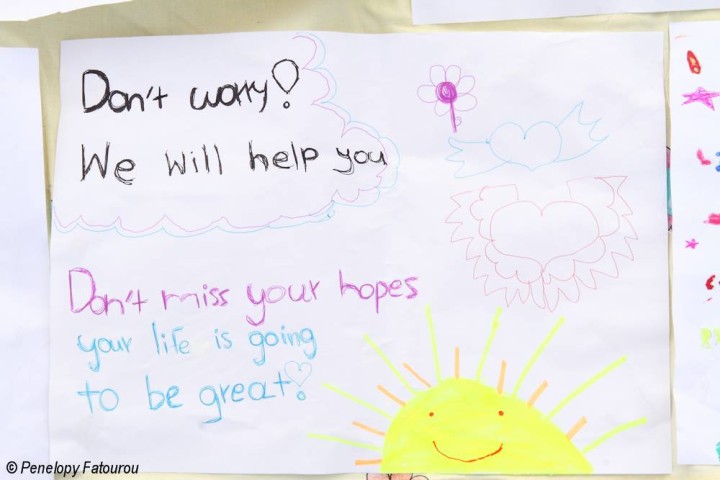 Don't worry!
We will help you
Don't miss your hopes
your life is going
to be great!
© Penelopy Fatourou